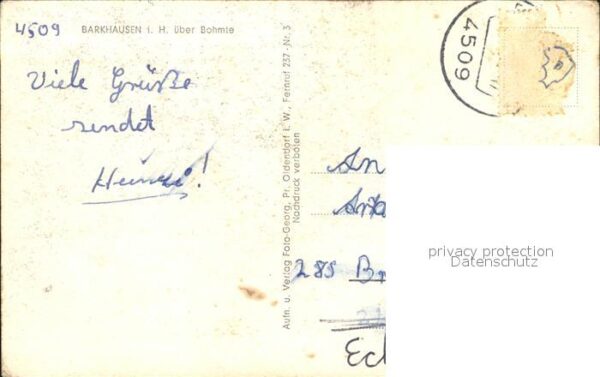 4509 BARKHAUSEN i. H. über Bohmte
Viele Grüße
sendet
!
Aufn. u. Verlag Foto-Georg, Pr. Oldendorf i. W., Fernruf 237 · Nr. 3
Nachdruck verboten
4509
An
285 Br
privacy protection
Datenschutz